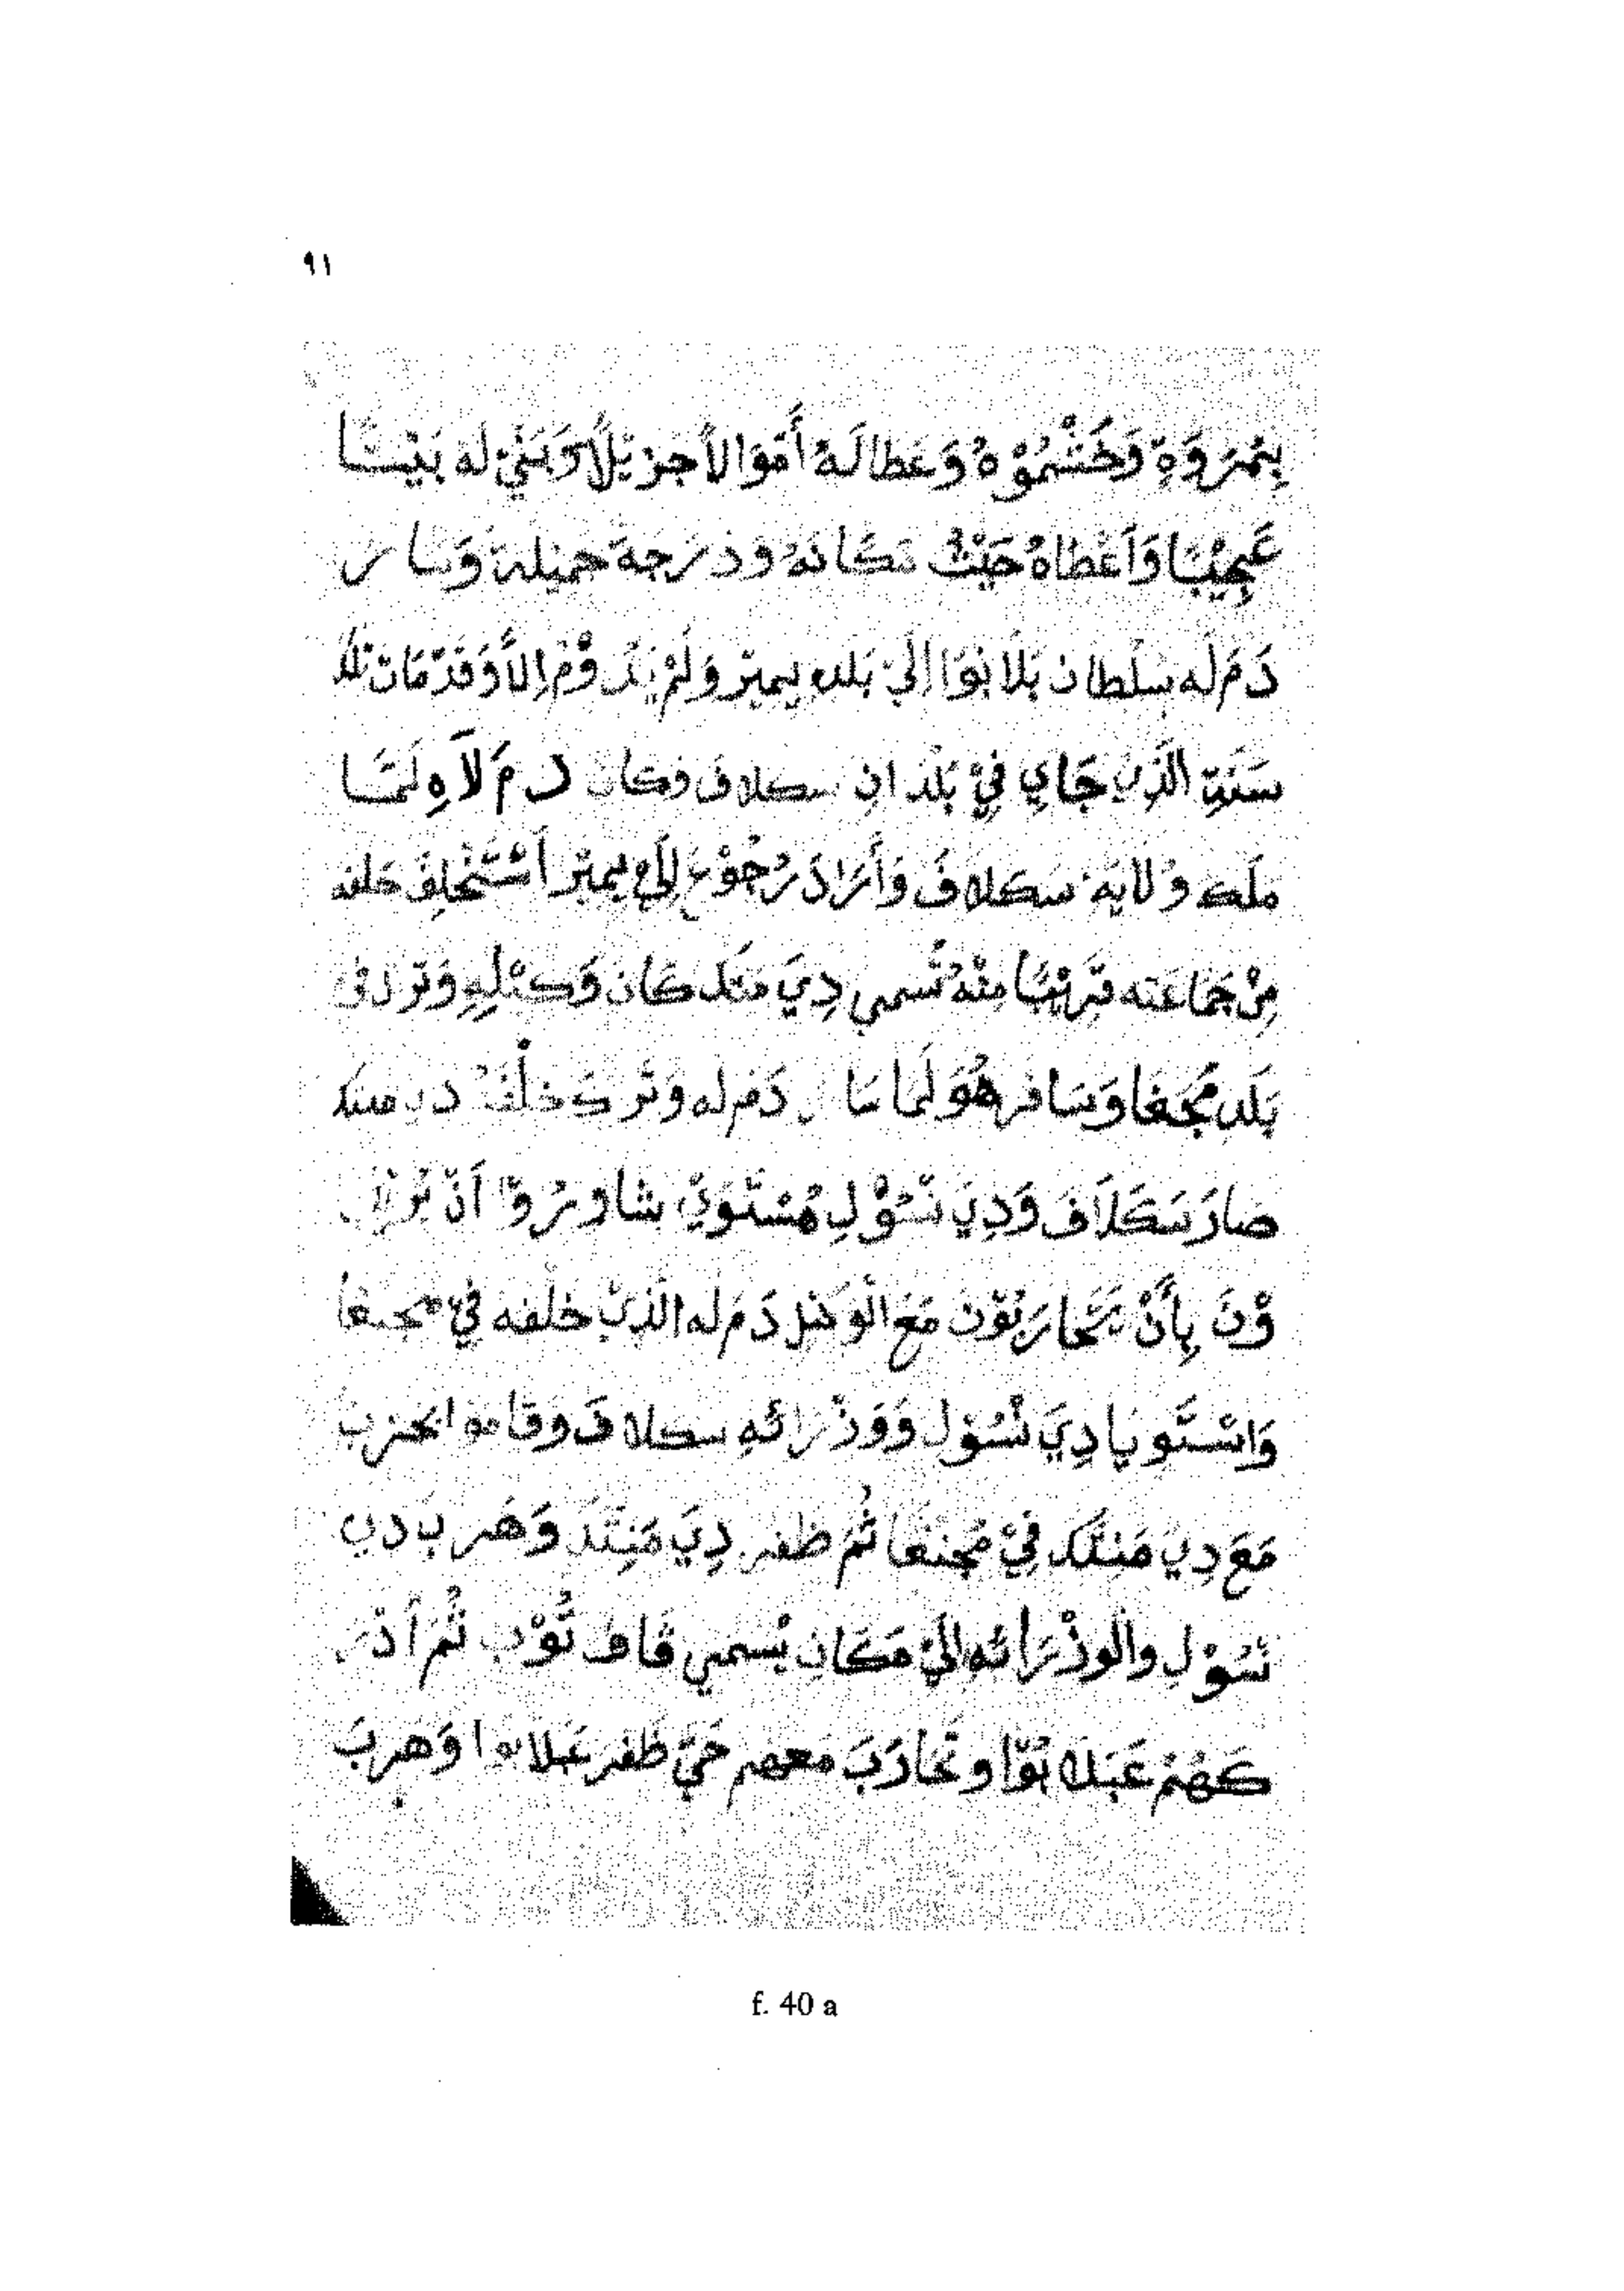 ٩١
بِثَمْرَوَةٍ وَخَشْمُوْهُ وَعَطا لَهُ أَمْوَالاً جزيْلاً وَبَنَيْ لَه بَيْتًا
عَجِيْبًا وَاَعْطاهُ حَيْثُ مَكَانَهُ وَدَرَجة جميلة وَسار
دَمَ لَه سلْطان بَلَابُوَا إِلَيْ بَلد يميز وَلَمْ يَدُوْمْ إِلاَّ وَقَدْ مَات تلك
سَنَتِ الَّذِيْ جَاي فِيْ بَلْدانِ سكلاف فكان دمَ لَاهِ لَمَّا
ملك ولاية سكلافَ وَأَرَادَ رُجُوْعَ إِلَيْ يميز اَسْتَخْلِفَ خلفه
مِنْ جَمَاعته قَرِيْبًا مِنْهُ تُسمي دِيَ مَنَكد كَان وَكيْلِهِ وَنزل في
بَلَدِ مُجنغا وَسَافر هُوَ لَما سَار دَمَ له وَتَركَ خلْفَهُ دي منكد
صَارَ سَكَلَافَ وَدِيَ نَسُوْلِ مُسْتَوِيْ شاورُوْا اَنْ يُر
وْنَ بِأَنْ يَتَحارَبُوْنَ مَعَ الْوكيل دَمَ له الَّذِيْ خلْفه فِيْ مجنغا
وَاسْتَويا دِيَ نَسُوْل وَوَزْرائهِ سكلافَ وَقاموا بحزب
مَعَ دِيَ مَنكد فِيْ مُجنغَا ثُمَّ ظفر دِيَ مَنِكَد وَهَرب دي
نَسُوْلِ والْوزْرَائه إِلَيْ مَكَانٍ يْسمي قاف تُوْب ثُمَّ أدْرَ
كَهُمْ عَبَلَابُوْا وتحارَبَ معهم حَيَّ ظَفر عَبلابوا وَهربَ
f. 40 a